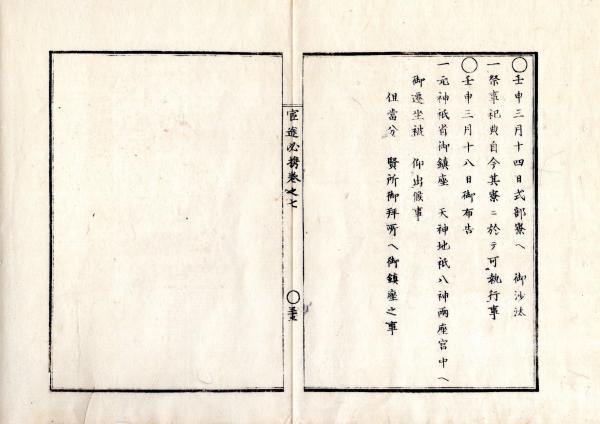 ◯壬申三月十四日式部寮ヘ　御沙汰
一祭事祀典自今其寮ニ於テ可執行事
◯壬申三月十八日御布告
一元神祇省御鎮座　天神地祇八神両座宮中ヘ
御遷坐被　仰出候事
但當分　賢所御拜所ヘ御鎮座之事
官途必携巻之七